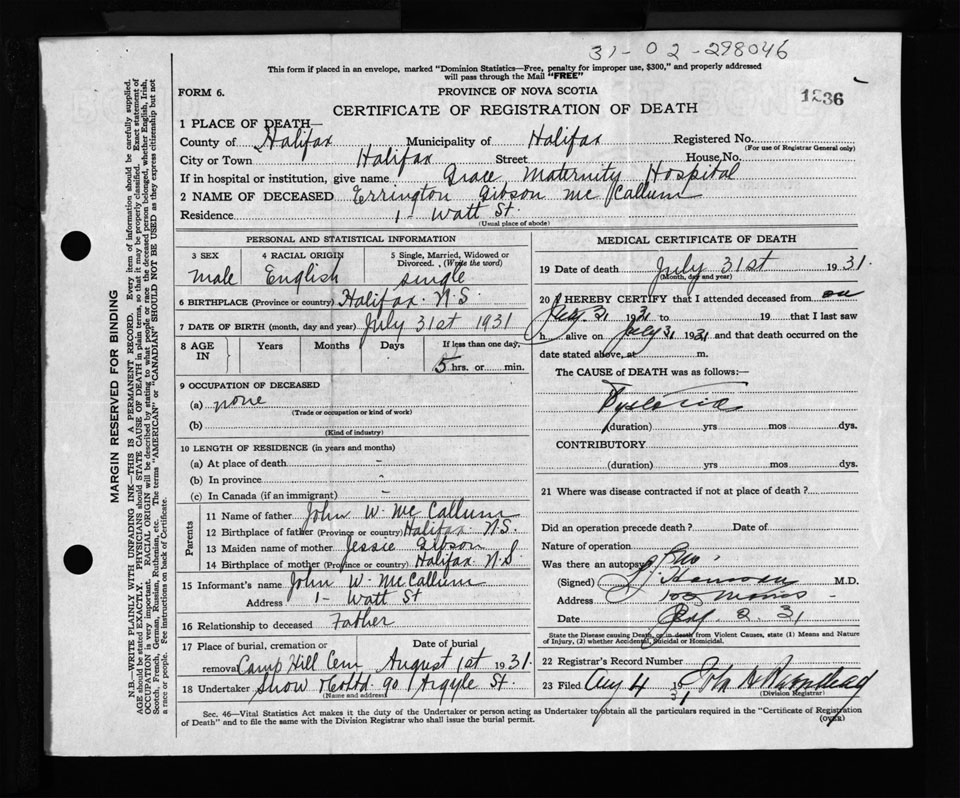 31-02-298046
This form if placed in an envelope, marked "Dominion Statistics—Free, penalty for improper use, $300," and properly addressed
will pass through the Mail "FREE"
FORM 6.
PROVINCE OF NOVA SCOTIA
1236
CERTIFICATE OF REGISTRATION OF DEATH
1 PLACE OF DEATH—
County of Halifax Municipality of Halifax Registered No.
(For use of Registrar General only)
City or Town Halifax Street House No.
If in hospital or institution, give name Grace Maternity Hospital
2 NAME OF DECEASED Errington Gibson Mc Callum
Residence 1 - Watt St.
(Usual place of abode)
PERSONAL AND STATISTICAL INFORMATION
3 SEX 4 RACIAL ORIGIN 5 Single, Married, Widowed or
Divorced. (Write the word)
male English single
6 BIRTHPLACE (Province or country) Halifax. N.S.
7 DATE OF BIRTH (month, day and year) July 31st 1931
8 AGE IN Years Months Days If less than one day,
5 hrs. or min.
9 OCCUPATION OF DECEASED
(a) none
(Trade or occupation or kind of work)
(b)
(Kind of industry)
10 LENGTH OF RESIDENCE (in years and months)
(a) At place of death -
(b) In province -
(c) In Canada (if an immigrant) -
Parents
11 Name of father John W. Mc Callum
12 Birthplace of father (Province or country) Halifax. N.S.
13 Maiden name of mother Jessie Gibson
14 Birthplace of mother (Province or country) Halifax. N.S
15 Informant's name John W. McCallum
Address 1 - Watt St
16 Relationship to deceased Father
17 Place of burial, cremation or Date of burial
removal Camp Hill Cem August 1st 1931.
18 Undertaker Snow & Co Ltd. 90 Argyle St.
(Name and address)
MEDICAL CERTIFICATE OF DEATH
19 Date of death July 31st 1931.
(Month, day and year)
20 I HEREBY CERTIFY that I attended deceased from on
July 31 1931 to 19 that I last saw
h alive on July 31 1931 and that death occurred on the
date stated above, at m.
The CAUSE of DEATH was as follows:—
(duration) yrs mos dys.
CONTRIBUTORY
(duration) yrs mos dys.
21 Where was disease contracted if not at place of death?
Did an operation precede death? Date of
Nature of operation
Was there an autopsy? No
(Signed) M.D.
Address Morris
Date 2. 31
State the Disease causing Death, or in death from Violent Causes, state (1) Means and Nature
of Injury, (2) whether Accidental, Suicidal or Homicidal.
22 Registrar's Record Number
23 Filed Aug 4 19
(Division Registrar)
Sec. 46—Vital Statistics Act makes it the duty of the Undertaker or person acting as Undertaker to obtain all the particulars required in the "Certificate of Registration
of Death" and to file the same with the Division Registrar who shall issue the burial permit.
(OVER)
MARGIN RESERVED FOR BINDING
N.B.—WRITE PLAINLY WITH UNFADING INK—THIS IS A PERMANENT RECORD. Every item of information should be carefully supplied.
AGE should be stated EXACTLY. PHYSICIANS should STATE CAUSE OF DEATH in plain terms, so that it may be properly classified. Exact statement of
OCCUPATION is very important. RACIAL ORIGIN will be described by stating to what people or race the deceased person belonged, whether English, Irish,
Scotch, French, German, Russian, Ruthenian, etc. The terms "AMERICAN" or "CANADIAN" SHOULD NOT BE USED as they express citizenship but not
a race or people. Fee instructions on back of Certificate.